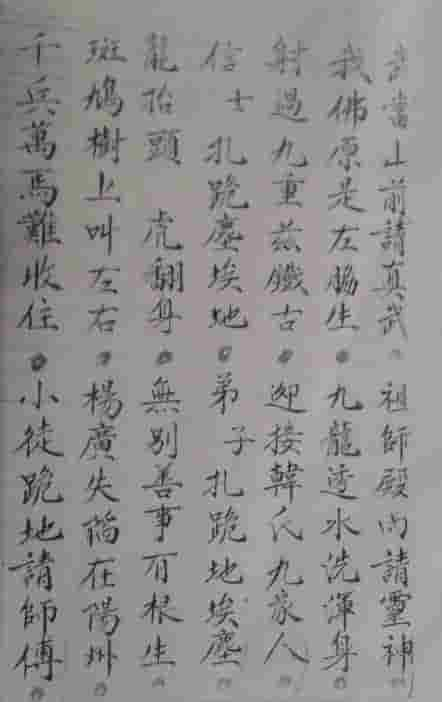 武當山前請真武。祖師殿內請靈神。
我佛原是左脇生。九龍透水洗渾身。
射過九重茲鐵古。迎接韓氏九家人。
信士扎跪塵埃地。弟子扎跪地埃塵。
龍抬頭 虎翻身。無別善事有根生。
斑鳩樹上叫左右。楊廣失陷在陽州。
千兵萬馬難收住。小徒跪地請師傅。